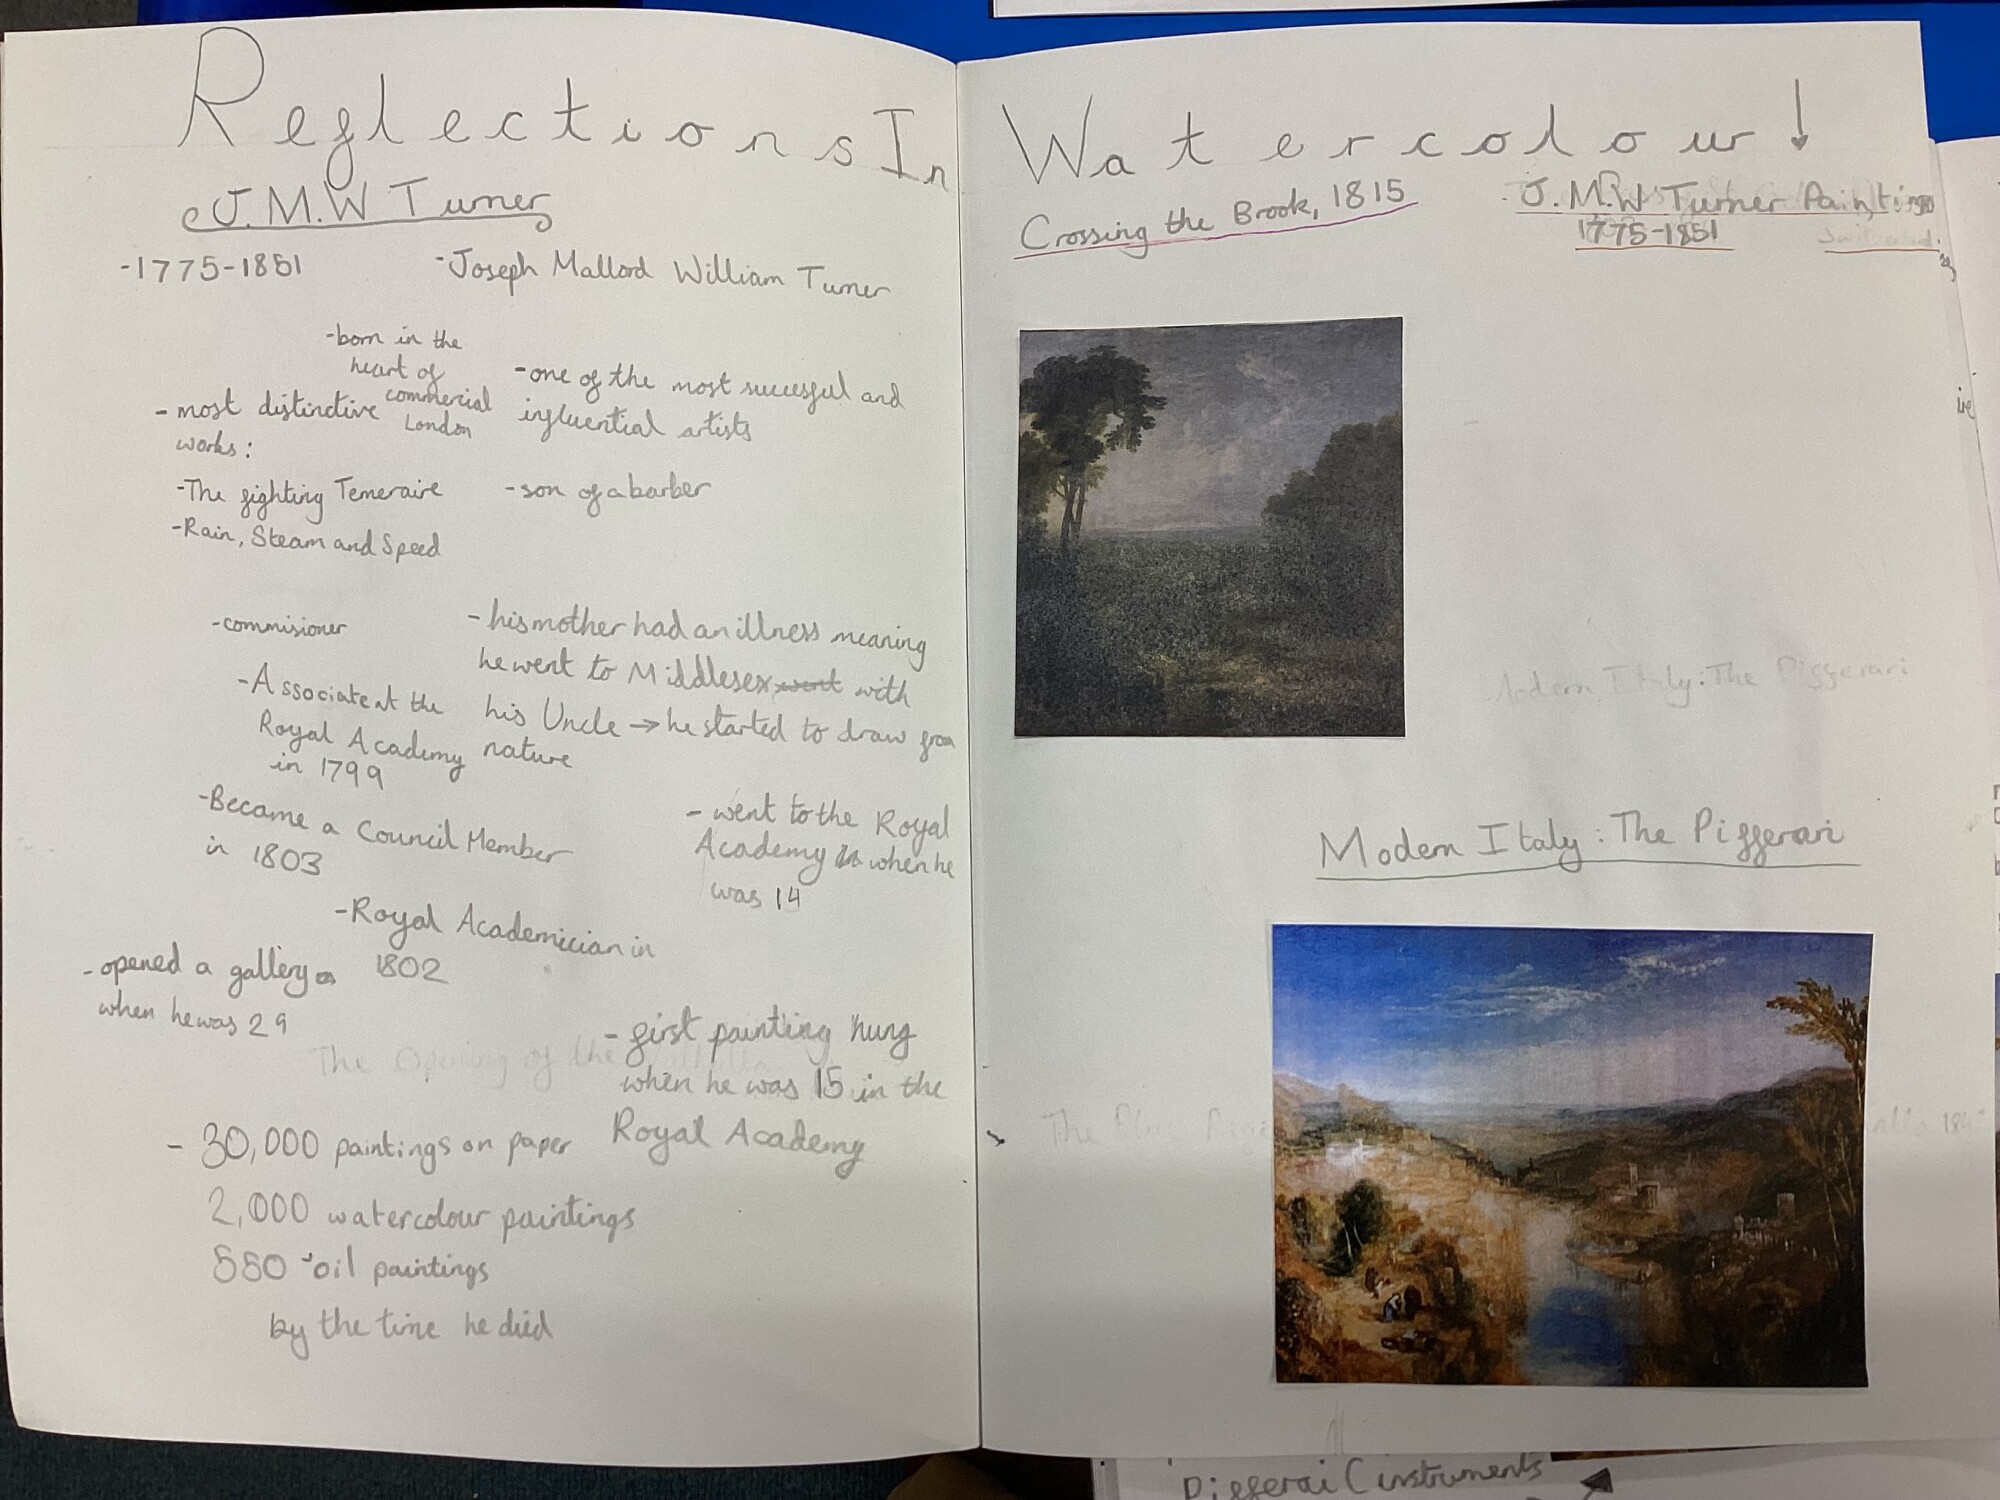 Reflections In Watercolour ↓
J.M.W Turner
-1775-1851
-Joseph Mallord William Turner
-born in the
heart of
commercial
London
-one of the most succesful and
influential artists
- most distinctive
works:
-The fighting Temeraire
-Rain, Steam and Speed
-son of a barber
-commisioner
- his mother had an illness meaning
he went to Middlesex went with
his Uncle → he started to draw from
nature
-Associate at the
Royal Academy
in 1799
-Became a Council Member
in 1803
- went to the Royal
Academy in when he
was 14
-Royal Academician in
1802
- opened a gallery
when he was 29
- first painting hung
when he was 15 in the
Royal Academy
The Opening of the
- 30,000 paintings on paper
2,000 watercolour paintings
550 oil paintings
by the time he died
Crossing the Brook, 1815
J.M.W Turner Paintings
1775-1851
Switzerland.
Modern Italy: The Pifferari
Modern Italy: The Pifferari
The Blue Rigi
Pifferai (instruments